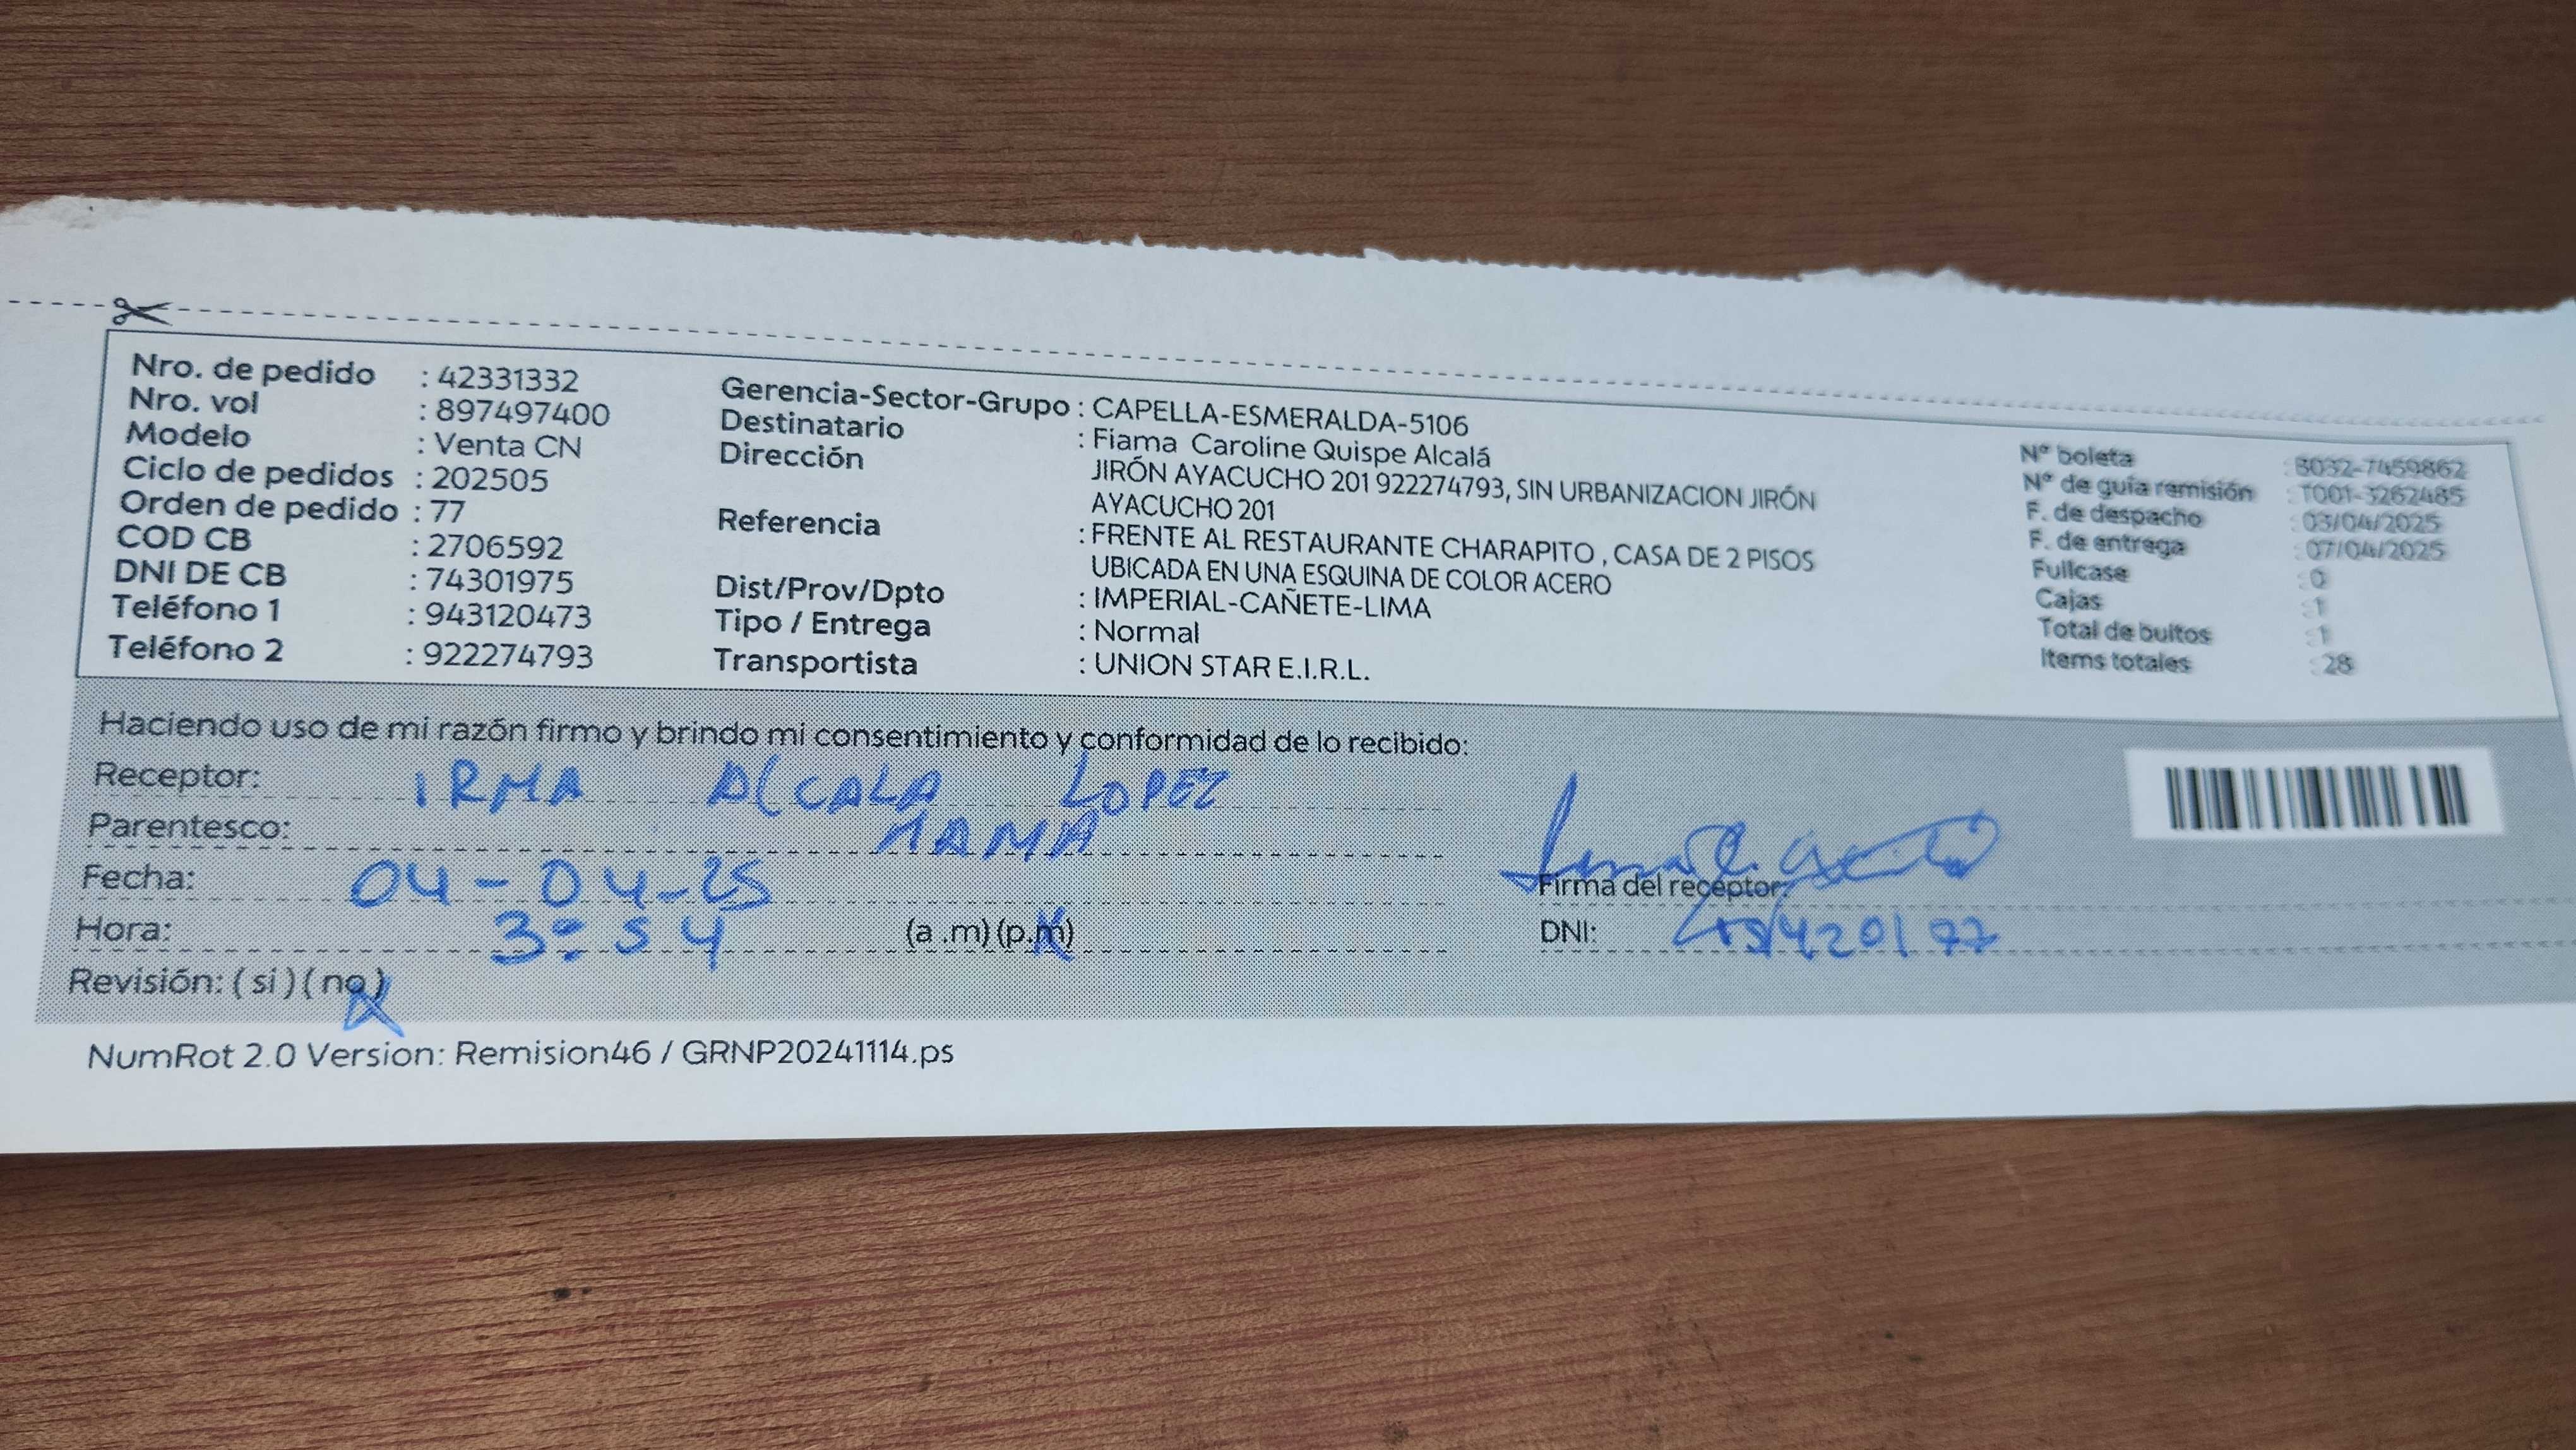 Nro. de pedido : 42331332
Nro. vol : 897497400
Modelo : Venta CN
Ciclo de pedidos : 202505
Orden de pedido : 77
COD CB : 2706592
DNI DE CB : 74301975
Teléfono 1 : 943120473
Teléfono 2 : 922274793
Gerencia-Sector-Grupo : CAPELLA-ESMERALDA-5106
Destinatario : Fiama Caroline Quispe Alcalá
Dirección JIRÓN AYACUCHO 201 922274793, SIN URBANIZACION JIRÓN
AYACUCHO 201
Referencia : FRENTE AL RESTAURANTE CHARAPITO , CASA DE 2 PISOS
UBICADA EN UNA ESQUINA DE COLOR ACERO
Dist/Prov/Dpto : IMPERIAL-CAÑETE-LIMA
Tipo / Entrega : Normal
Transportista : UNION STAR E.I.R.L.
N° boleta : B032-7459862
N° de guía remisión : T001-3262485
F. de despacho : 03/04/2025
F. de entrega : 07/04/2025
Fullcase : 0
Cajas : 1
Total de bultos : 1
Items totales : 28
Haciendo uso de mi razón firmo y brindo mi consentimiento y conformidad de lo recibido:
Receptor: IRMA ALCALA LOPEZ
Parentesco: MAMA
Fecha: 04-04-25
Hora: 3:54 (a .m) (p.m)
Revisión: ( si ) ( no )
Firma del receptor:
DNI:
NumRot 2.0 Version: Remision46 / GRNP20241114.ps